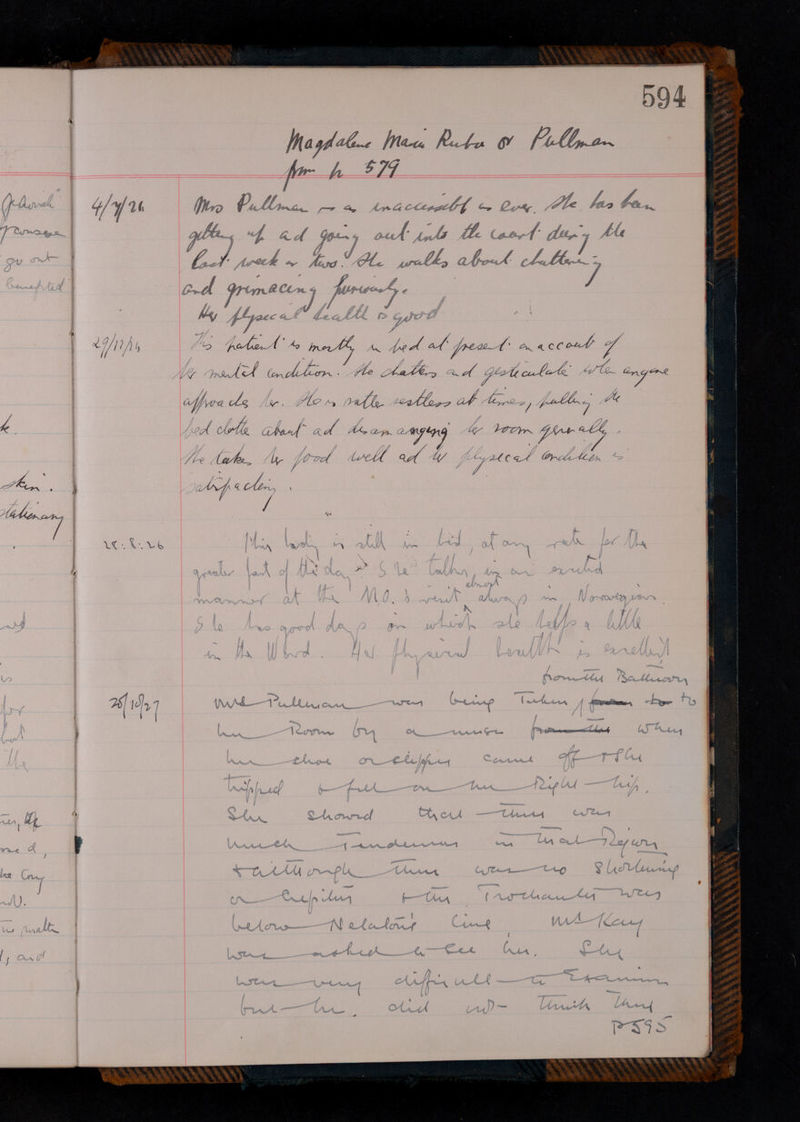 594
Magdalene Maria Rubo or Pullman
from p 579
4/7/26 Mrs Pullman is as inaccessible as ever. She has been
getting up and going out into the court during the
last week or two. She walks about chattering
and grimacing furiously.
Her physical health is good
This patient is mostly in bed at present on account of
her mental condition. She chatters and gesticulates when anyone
approaches her. She is rather restless at times, pulling the
bed clothes about and disarranging her room generally.
She takes her food well and her physical condition is
satisfactory.
28:8:26 This lady is still in bed, at any rate for the
greater part of the day. She talks in an excited
manner at the M.O.'s visit almost always in Norwegian.
She has good days on which she helps a little
in the Ward. Her physical health is excellent
from the Bathroom
25/10/27 Mrs Pullman was being Taken from to to
her Room by a nurse from the when
her shoe or slipper came off & She
tripped & fell on her Right hip.
She showed that there was
much Tenderness in that Region
& although there was no Shortening
or Crepitus & the Trochanter was
below Nelaton's line, Mr Kay
was asked to see her. She
was very difficult to Examine
but he did not think there
P 595
skin.
stationary
go out
benefited
k.
for
but
the
and